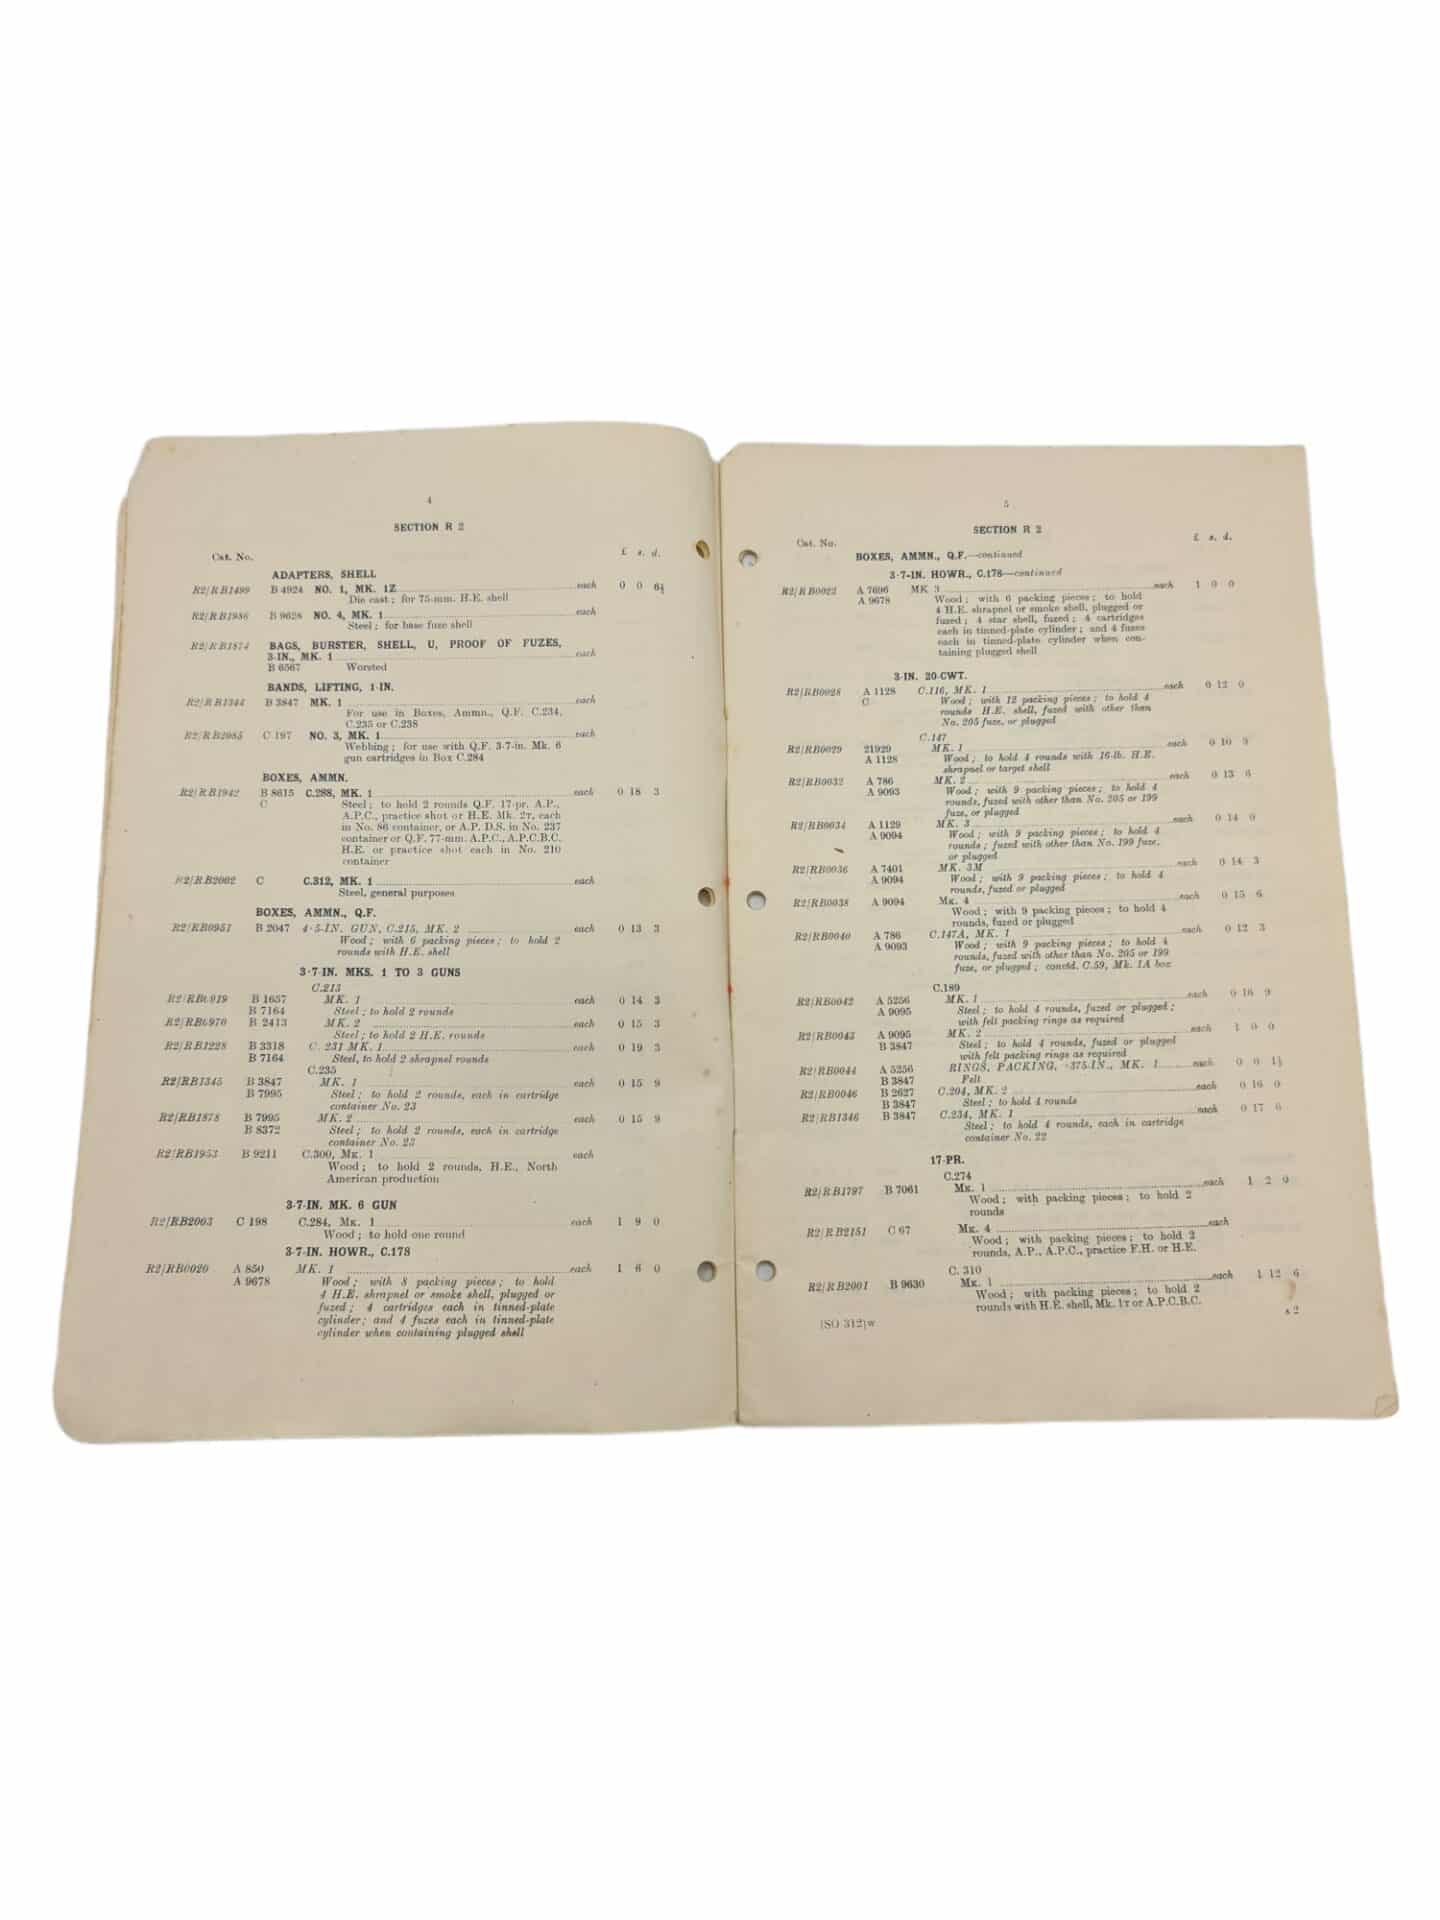 4
SECTION R 2
Cat. No. £ s. d.
ADAPTERS, SHELL
R2/RB1499 B 4924 NO. 1, MK. 1Z each 0 0 6½
Die cast; for 75-mm. H.E. shell
R2/RB1986 B 9628 NO. 4, MK. 1 each
Steel; for base fuze shell
R2/RB1874 BAGS, BURSTER, SHELL, U, PROOF OF FUZES,
3-IN., MK. 1 each
B 6567 Worsted
BANDS, LIFTING, 1-IN.
R2/RB1344 B 3847 MK. 1 each
For use in Boxes, Ammn., Q.F. C.234,
C.235 or C.238
R2/RB2085 C 197 NO. 3, MK. 1 each
Webbing; for use with Q.F. 3·7-in. Mk. 6
gun cartridges in Box C.284
BOXES, AMMN.
R2/RB1942 B 8615 C.288, MK. 1 each 0 18 3
C Steel; to hold 2 rounds Q.F. 17-pr. A.P.,
A.P.C., practice shot or H.E. Mk. 2T, each
in No. 86 container, or A.P. D.S. in No. 237
container or Q.F. 77-mm. A.P.C., A.P.C.B.C.
H.E. or practice shot each in No. 210
container
R2/RB2002 C C.312, MK. 1 each
Steel, general purposes
BOXES, AMMN., Q.F.
R2/RB0951 B 2047 4·5-IN. GUN, C.215, MK. 2 each 0 13 3
Wood; with 6 packing pieces; to hold 2
rounds with H.E. shell
3·7-IN. MKS. 1 TO 3 GUNS
C.213
R2/RB0919 B 1657 MK. 1 each 0 14 3
B 7164 Steel; to hold 2 rounds
R2/RB0970 B 2413 MK. 2 each 0 15 3
Steel; to hold 2 H.E. rounds
R2/RB1228 B 3318 C. 231 MK. 1 each 0 19 3
B 7164 Steel, to hold 2 shrapnel rounds
C.235
R2/RB1345 B 3847 MK. 1 each 0 15 9
B 7995 Steel; to hold 2 rounds, each in cartridge
container No. 23
R2/RB1878 B 7995 MK. 2 each 0 15 9
B 8372 Steel; to hold 2 rounds, each in cartridge
container No. 23
R2/RB1953 B 9211 C.300, MK. 1 each
Wood; to hold 2 rounds, H.E., North
American production
3·7-IN. MK. 6 GUN
R2/RB2003 C 198 C.284, MK. 1 each 1 9 0
Wood; to hold one round
3·7-IN. HOWR., C.178
R2/RB0020 A 850 MK. 1 each 1 6 0
A 9678 Wood; with 8 packing pieces; to hold
4 H.E. shrapnel or smoke shell, plugged or
fuzed; 4 cartridges each in tinned-plate
cylinder; and 4 fuzes each in tinned-plate
cylinder when containing plugged shell
5
SECTION R 2
Cat. No. £ s. d.
BOXES, AMMN., Q.F.—continued
3·7-IN. HOWR., C.178—continued
R2/RB0023 A 7696 MK 3 each 1 0 0
A 9678 Wood; with 6 packing pieces; to hold
4 H.E. shrapnel or smoke shell, plugged or
fuzed; 4 star shell, fuzed; 4 cartridges
each in tinned-plate cylinder; and 4 fuzes
each in tinned-plate cylinder when con-
taining plugged shell
3-IN. 20-CWT.
R2/RB0028 A 1128 C.116, MK. 1 each 0 12 0
C Wood; with 12 packing pieces; to hold 4
rounds H.E. shell, fuzed with other than
No. 205 fuze, or plugged
C.147
R2/RB0029 21929 MK. 1 each 0 10 9
A 1128 Wood; to hold 4 rounds with 16-lb. H.E.
shrapnel or target shell
R2/RB0032 A 786 MK. 2 each 0 13 6
A 9093 Wood; with 9 packing pieces; to hold 4
rounds, fuzed with other than No. 205 or 199
fuze, or plugged
R2/RB0034 A 1129 MK. 3 each 0 14 0
A 9094 Wood; with 9 packing pieces; to hold 4
rounds; fuzed with other than No. 199 fuze,
or plugged
R2/RB0036 A 7401 MK. 3M each 0 14 3
A 9094 Wood; with 9 packing pieces; to hold 4
rounds, fuzed or plugged
R2/RB0038 A 9094 MK. 4 each 0 15 6
Wood; with 9 packing pieces; to hold 4
rounds, fuzed or plugged
R2/RB0040 A 786 C.147A, MK. 1 each 0 12 3
A 9093 Wood; with 9 packing pieces; to hold 4
rounds, fuzed with other than No. 205 or 199
fuze, or plugged; conv'd. C.59, Mk. 1A box
C.189
R2/RB0042 A 5256 MK. 1 each 0 16 9
A 9095 Steel; to hold 4 rounds, fuzed or plugged;
with felt packing rings as required
R2/RB0043 A 9095 MK. 2 each 1 0 0
B 3847 Steel; to hold 4 rounds, fuzed or plugged
with felt packing rings as required
R2/RB0044 A 5256 RINGS, PACKING, ·375-IN., MK. 1 each 0 0 1½
B 3847 Felt
R2/RB0046 B 2627 C.204, MK. 2 each 0 16 0
B 3847 Steel; to hold 4 rounds
R2/RB1346 B 3847 C.234, MK. 1 each 0 17 6
Steel; to hold 4 rounds, each in cartridge
container No. 22
17-PR.
C.274
R2/RB1797 B 7061 MK. 1 each 1 2 0
Wood; with packing pieces; to hold 2
rounds
R2/RB2151 C 67 MK. 4 each
Wood; with packing pieces; to hold 2
rounds, A.P., A.P.C., practice F.H. or H.E.
C. 310
R2/RB2001 B 9630 MK. 1 each 1 12 6
Wood; with packing pieces; to hold 2
rounds with H.E. shell, Mk. 1T or A.P.C.B.C.
(SO 312)W A 2